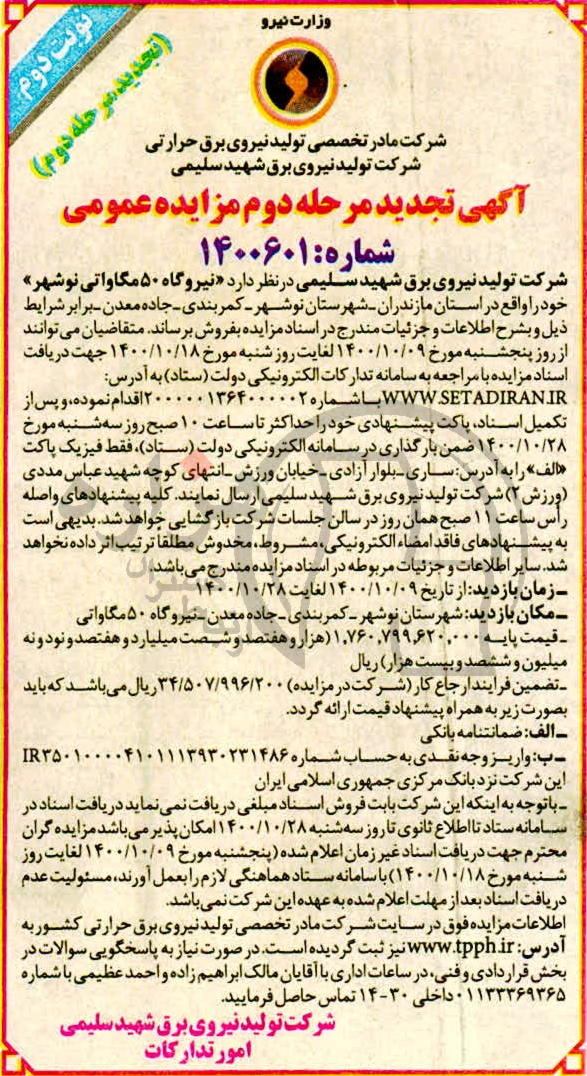 وزارت نیرو
نوبت دوم
(تجدید مرحله دوم)
شرکت مادر تخصصی تولید نیروی برق حرارتی
شرکت تولید نیروی برق شهید سلیمی
آگهی تجدید مرحله دوم مزایده عمومی
شماره: ۱۴۰۰۶۰۱
شرکت تولید نیروی برق شهید سلیمی در نظر دارد «نیروگاه ۵۰ مگاواتی نوشهر»
خود را واقع در استان مازندران ـ شهرستان نوشهر ـ کمربندی ـ جاده معدن ـ برابر شرایط
ذیل و بشرح اطلاعات و جزئیات مندرج در اسناد مزایده بفروش برساند. متقاضیان می توانند
از روز پنجشنبه مورخ ۱۴۰۰/۱۰/۰۹ لغایت روز شنبه مورخ ۱۴۰۰/۱۰/۱۸ جهت دریافت
اسناد مزایده با مراجعه به سامانه تدارکات الکترونیکی دولت (ستاد) به آدرس:
WWW.SETADIRAN.IR با شماره ۲۰۰۰۰۰۱۳۶۴۰۰۰۰۰۲ اقدام نموده، و پس از
تکمیل اسناد، پاکت پیشنهادی خود را حداکثر تا ساعت ۱۰ صبح روز سه شنبه مورخ
۱۴۰۰/۱۰/۲۸ ضمن بارگذاری در سامانه الکترونیکی دولت (ستاد)، فقط فیزیک پاکت
«الف» را به آدرس: ساری ـ بلوار آزادی ـ خیابان ورزش ـ انتهای کوچه شهید عباس مددی
(ورزش ۲) شرکت تولید نیروی برق شهید سلیمی ارسال نمایند. کلیه پیشنهادهای واصله
رأس ساعت ۱۱ صبح همان روز در سالن جلسات شرکت بازگشایی خواهد شد. بدیهی است
به پیشنهادهای فاقد امضاء الکترونیکی، مشروط، مخدوش مطلقا ترتیب اثر داده نخواهد
شد. سایر اطلاعات و جزئیات مربوطه در اسناد مزایده مندرج می باشد.
ـ زمان بازدید: از تاریخ ۱۴۰۰/۱۰/۰۹ لغایت ۱۴۰۰/۱۰/۲۸
ـ مکان بازدید: شهرستان نوشهر ـ کمربندی ـ جاده معدن ـ نیروگاه ۵۰ مگاواتی
ـ قیمت پایه ۱,۷۶۰,۷۹۹,۶۲۰,۰۰۰ (هزار و هفتصد و شصت میلیارد و هفتصد و نود و نه
میلیون و ششصد و بیست هزار) ریال
ـ تضمین فرایند ارجاع کار (شرکت در مزایده) ۳۴/۵۰۷/۹۹۶/۲۰۰ ریال می باشد که باید
بصورت زیر به همراه پیشنهاد قیمت ارائه گردد.
ـ الف: ضمانتنامه بانکی
ـ ب: واریز وجه نقدی به حساب شماره IR۳۵۰۱۰۰۰۰۴۱۰۱۱۱۳۹۳۰۲۳۱۴۸۶
این شرکت نزد بانک مرکزی جمهوری اسلامی ایران
ـ با توجه به اینکه این شرکت بابت فروش اسناد مبلغی دریافت نمی نماید دریافت اسناد در
سامانه ستاد تا اطلاع ثانوی تا روز سه شنبه ۱۴۰۰/۱۰/۲۸ امکان پذیر می باشد مزایده گران
محترم جهت دریافت اسناد غیر زمان اعلام شده (پنجشنبه مورخ ۱۴۰۰/۱۰/۰۹ لغایت روز
شنبه مورخ ۱۴۰۰/۱۰/۱۸) با سامانه ستاد هماهنگی لازم را بعمل آورند، مسئولیت عدم
دریافت اسناد بعد از مهلت اعلام شده به عهده این شرکت نمی باشد.
اطلاعات مزایده فوق در سایت شرکت مادر تخصصی تولید نیروی برق حرارتی کشور به
آدرس: www.tpph.ir نیز ثبت گردیده است. در صورت نیاز به پاسخگویی سوالات در
بخش قراردادی و فنی، در ساعات اداری با آقایان مالک ابراهیم زاده و احمد عظیمی با شماره
۰۱۱۳۳۳۶۹۳۶۵ داخلی ۳۰-۱۴ تماس حاصل فرمایید.
شرکت تولید نیروی برق شهید سلیمی
امور تدارکات